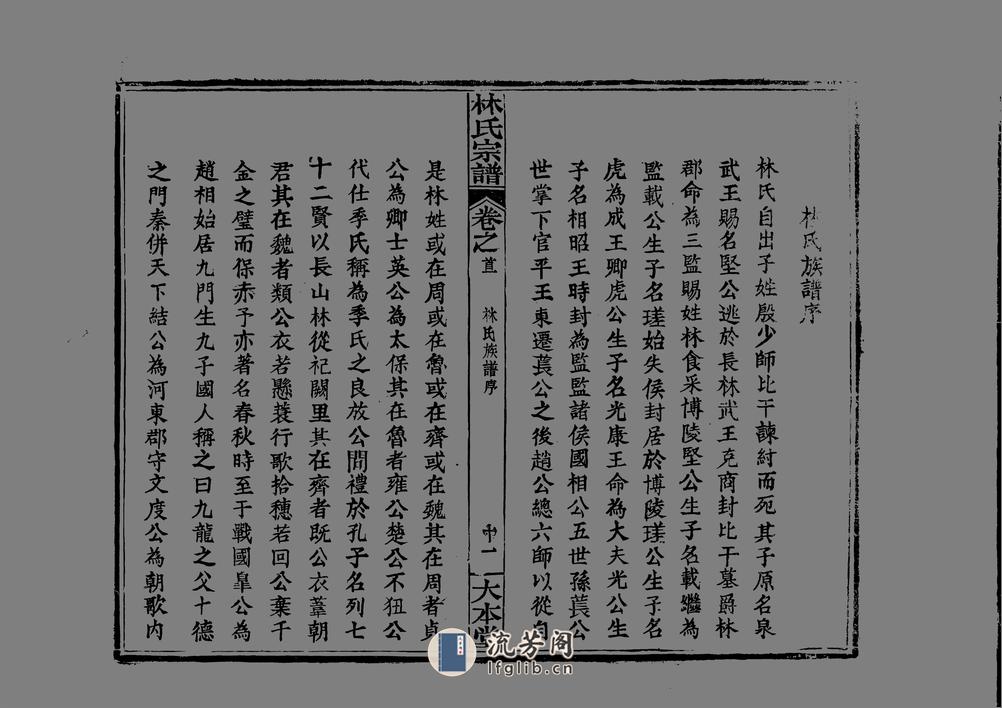 林氏族譜序
林氏自出子姓殷少師比干諫紂而死其子原名泉
武王賜名堅公逃於長林武王克商封比干墓爵林
郡命為三監賜姓林食采博陵堅公生子名載繼為
監載公生子名瑳始失侯封居於博陵瑳公生子名
虎為成王卿虎公生子名光康王命為大夫光公生
子名相昭王時封為監監諸侯國相公五世孫萇公
世掌下官平王東遷萇公之後趙公總六師以從自
林氏宗譜 卷之首 林氏族譜序 二 大本堂
是林姓或在周或在魯或在齊或在魏其在周者貞
公為卿士英公為太保其在魯者雍公楚公不狃公
代仕季氏稱為季氏之良放公問禮於孔子名列七
十二賢以長山林從祀闕里其在齊者既公衣葦朝
君其在魏者類公衣若懸蓑行歌拾穗若回公棄千
金之璧而保赤予亦著名春秋時至于戰國皐公為
趙相始居九門生九子國人稱之曰九龍之父十德
之門秦併天下結公為河東郡守文度公為朝歌內
流芳阁
lfglib.cn